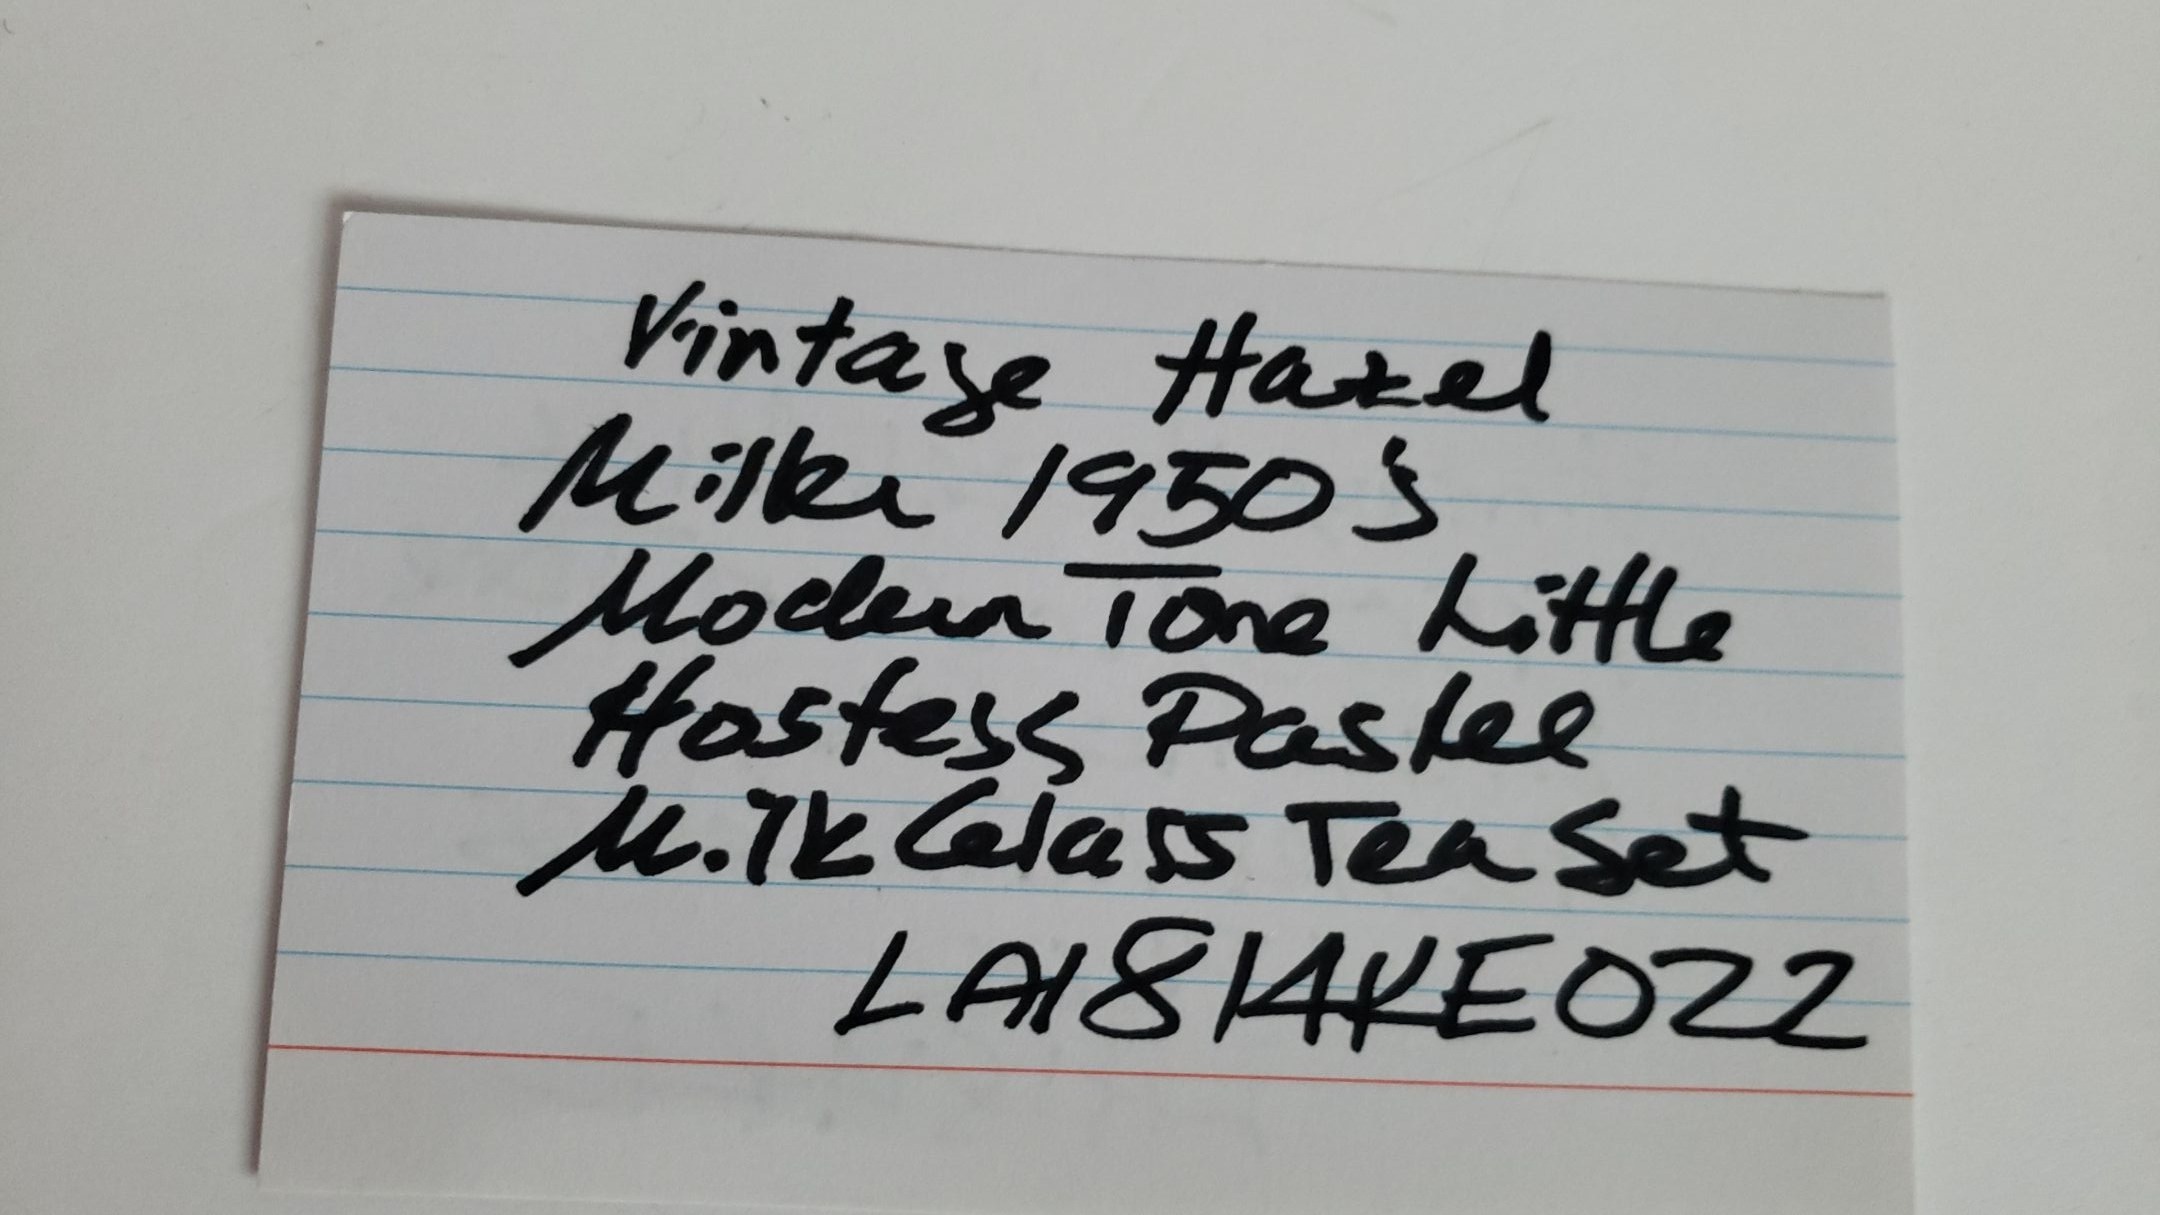 Vintage Hazel
Milka 1950's
Modern Tone Little
Hostess Pastel
Milk Glass Tea Set
LA1814KE022